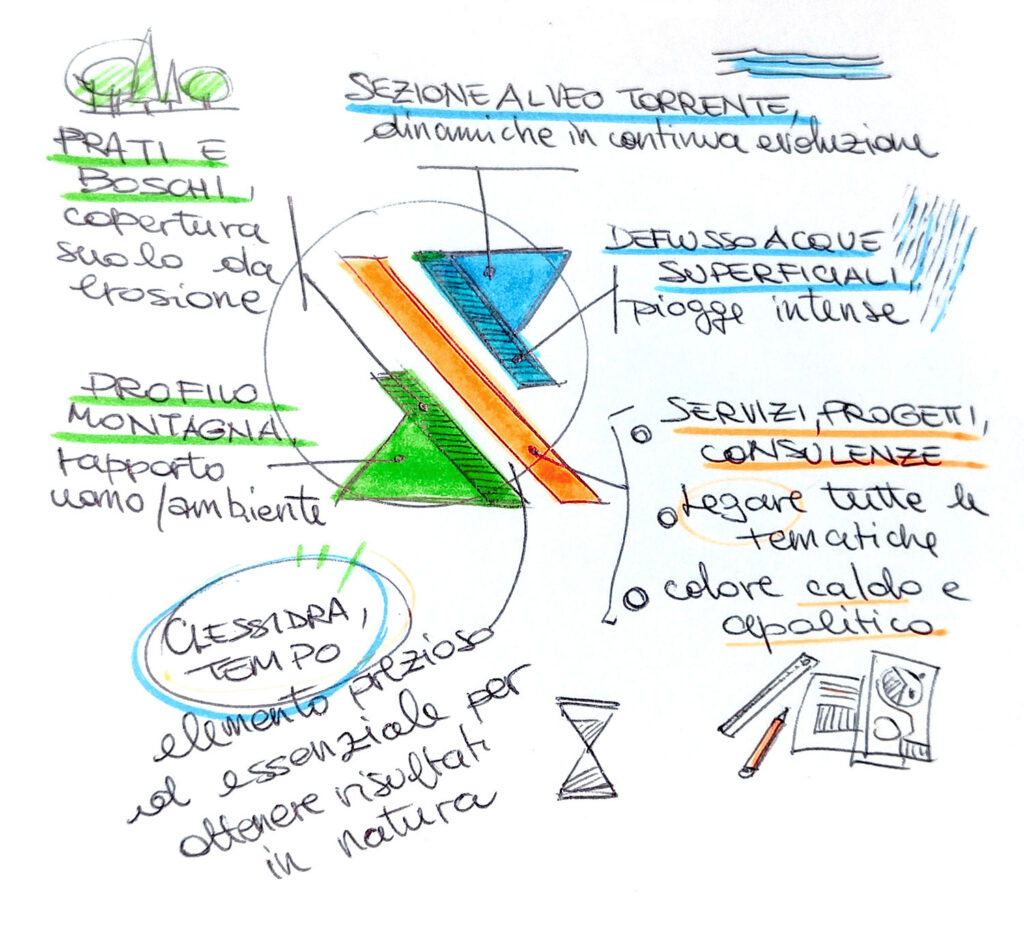 SEZIONE ALVEO TORRENTE,
dinamiche in continua evoluzione
PRATI E
BOSCHI,
copertura
suolo da
erosione
DEFLUSSO ACQUE
SUPERFICIALI,
piogge intense
PROFILO
MONTAGNA,
rapporto
uomo/ambiente
SERVIZI, PROGETTI,
CONSULENZE
legare tutte le
tematiche
colore caldo e
apolitico
CLESSIDRA,
TEMPO
elemento prezioso
ed essenziale per
ottenere risultati
in natura